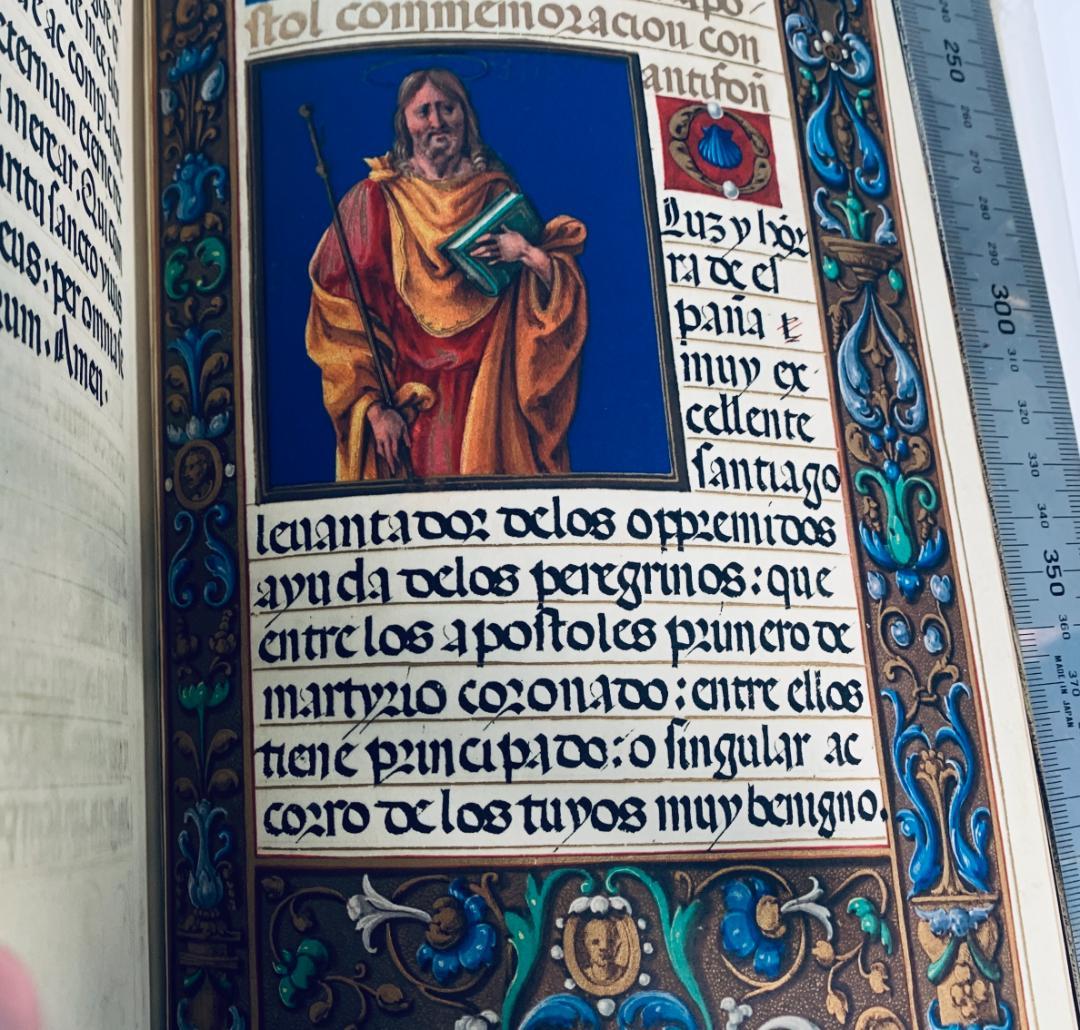 ac compleas
eternum
merear. Qui cum
sancto
per omnia
Amen.
ſtol commemoracion con
antifoñ
Luz y hõr
ra de eſ
paña
muy ex
cellente
ſantiago
leuantador delos oppremidos
ayuda delos peregrinos: que
entre los apoſtoles primero de
martyrio coronado: entre ellos
tiene principado: o ſingular ac
corro de los tuyos muy benigno.
240
250
260
270
280
290
300
310
320
330
340
350
360
370
MADE IN JAPAN